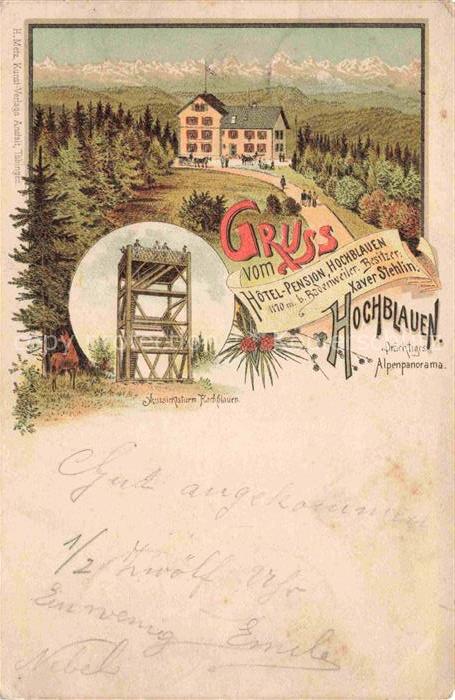 H. Metz, Kunst-Verlags Anstalt, Tübingen
GRUSS
VOM
HÔTEL-PENSION, HOCHBLAUEN
1170 m. b. Badenweiler. Besitzer:
Xaver Stehlin.
HOCHBLAUEN.
Prächtiges
Alpenpanorama.
Aussichtsturm Hochblauen.
Gut angekommen
1/2 Zwölf Uhr
Ein wenig Emile
Nebel